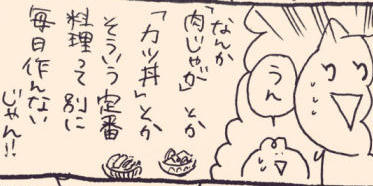 うん
「なんか
「肉じゃが」とか
「カツ丼」とか
そういう定番
料理って別に
毎日作んない
じゃん!!